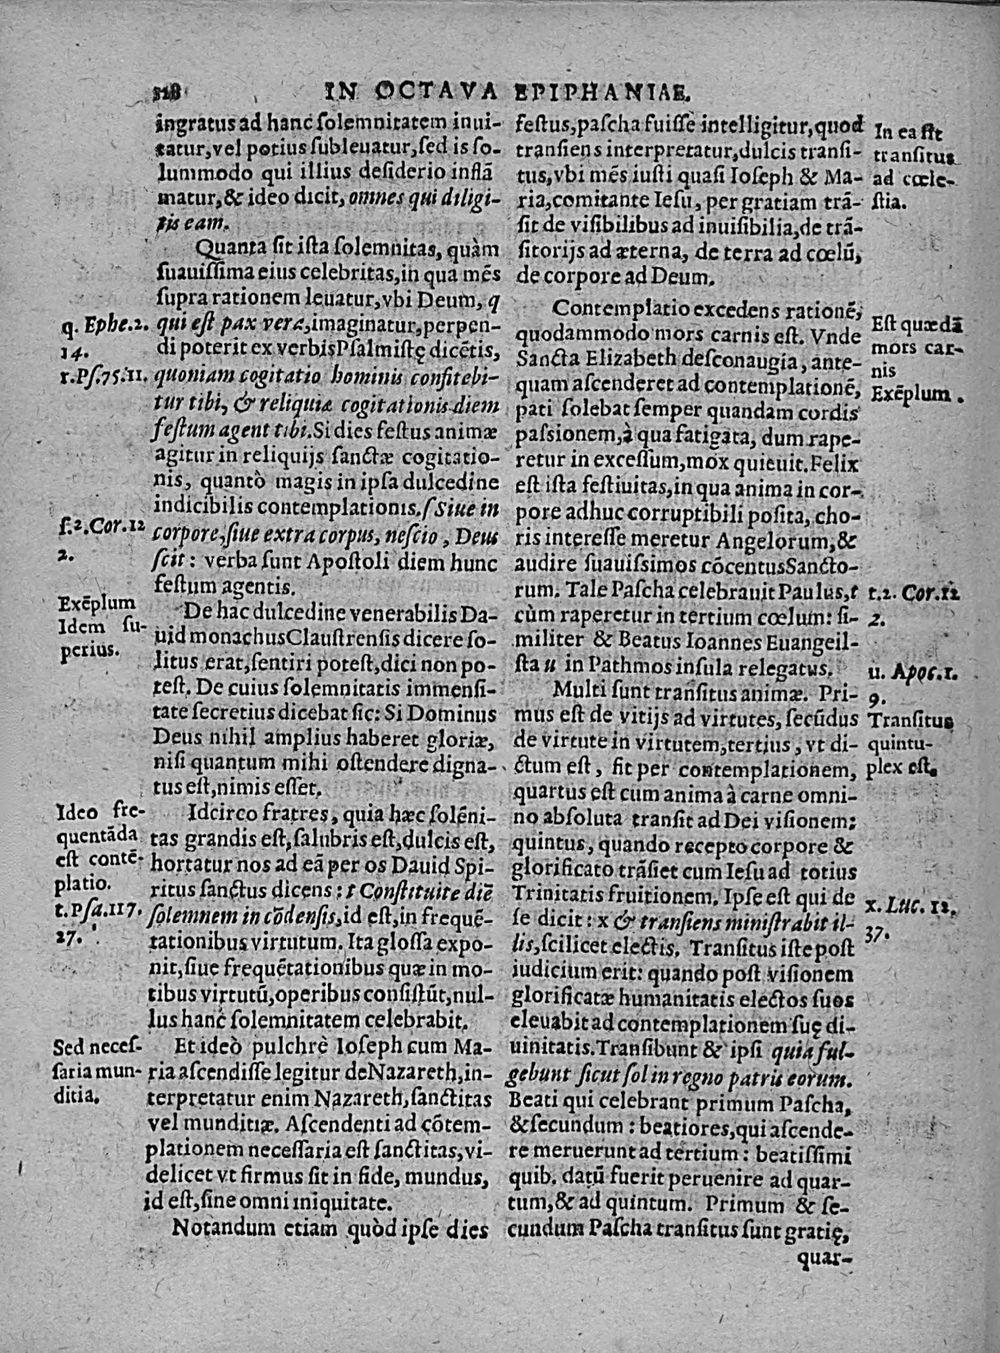 318 IN OCTAVA EPIPHANIAE.
ingratus ad hanc ſolemnitatem inui-
tatur, vel potius ſubleuatur, ſed is ſo-
lummodo qui illius deſiderio inflā
matur, & ideo dicit, omnes qui diligi-
tis eam.
Quanta ſit iſta ſolemnitas, quàm
ſuauiſſima eius celebritas, in qua mēs
ſupra rationem leuatur, vbi Deum, q
qui eſt pax vera, imaginatur, perpen-
di poterit ex verbis Pſalmiſtę dicētis,
quoniam cogitatio hominis confitebi-
tur tibi, & reliquiæ cogitationis diem
feſtum agent tibi. Si dies feſtus animæ
agitur in reliquijs ſanctæ cogitatio-
nis, quantò magis in ipſa dulcedine
indicibilis contemplationis. ſ Siue in
corpore, ſiue extra corpus, neſcio, Deus
ſcit: verba ſunt Apoſtoli diem hunc
feſtum agentis.
De hac dulcedine venerabilis Da-
uid monachus Clauſtrenſis dicere ſo-
litus erat, ſentiri poteſt, dici non po-
teſt. De cuius ſolemnitatis immenſi-
tate ſecretius dicebat ſic: Si Dominus
Deus nihil amplius haberet gloriæ,
niſi quantum mihi oſtendere digna-
tus eſt, nimis eſſet.
Idcirco fratres, quia hæc ſolēni-
tas grandis eſt, ſalubris eſt, dulcis eſt,
hortatur nos ad eā per os Dauid Spi-
ritus ſanctus dicens: t Conſtituite diē
ſolemnem in cōdenſis, id eſt, in frequē-
tationibus virtutum. Ita gloſſa expo-
nit, ſiue frequētationibus quæ in mo-
tibus virtutū, operibus conſiſtūt, nul-
lus hanc ſolemnitatem celebrabit.
Et ideò pulchrè Ioſeph cum Ma-
ria aſcendiſſe legitur de Nazareth, in-
terpretatur enim Nazareth, ſanctitas
vel munditiæ. Aſcendenti ad cōtem-
plationem neceſſaria eſt ſanctitas, vi-
delicet vt firmus ſit in fide, mundus,
id eſt, ſine omni iniquitate.
Notandum etiam quòd ipſe dies
q. Ephe. 2.
14.
r. Pſ. 75. 11.
ſ. 2. Cor. 12
2.
Exēplum
Idem ſu-
perius.
Ideo fre-
quentāda
eſt contē-
platio.
t. Pſa. 117.
27.
Sed neceſ-
ſaria mun-
ditia.
feſtus, paſcha fuiſſe intelligitur, quod
tranſiens interpretatur, dulcis tranſi-
tus, vbi mēs iuſti quaſi Ioſeph & Ma-
ria, comitante Ieſu, per gratiam trā-
ſit de viſibilibus ad inuiſibilia, de trā-
ſitorijs ad æterna, de terra ad cœlū,
de corpore ad Deum.
Contemplatio excedens rationē,
quodammodo mors carnis eſt. Vnde
Sancta Elizabeth deſconaugia, ante-
quam aſcenderet ad contemplationē,
pati ſolebat ſemper quandam cordis
paſſionem, à qua fatigata, dum rape-
retur in exceſſum, mox quieuit. Felix
eſt iſta feſtiuitas, in qua anima in cor-
pore adhuc corruptibili poſita, cho-
ris intereſſe meretur Angelorum, &
audire ſuauiſſimos cōcentus Sancto-
rum. Tale Paſcha celebrauit Paulus, t
cùm raperetur in tertium cœlum: ſi-
militer & Beatus Ioannes Euangeil-
ſta u in Pathmos inſula relegatus.
Multi ſunt tranſitus animæ. Pri-
mus eſt de vitijs ad virtutes, ſecūdus
de virtute in virtutem, tertius, vt di-
ctum eſt, ſit per contemplationem,
quartus eſt cum anima à carne omni-
no abſoluta tranſit ad Dei viſionem;
quintus, quando recepto corpore &
glorificato trāſiet cum Ieſu ad totius
Trinitatis fruitionem. Ipſe eſt qui de
ſe dicit: x & tranſiens miniſtrabit il-
lis, ſcilicet electis. Tranſitus iſte poſt
iudicium erit: quando poſt viſionem
glorificatæ humanitatis electos ſuos
eleuabit ad contemplationem ſuę di-
uinitatis. Tranſibunt & ipſi quia ful-
gebunt ſicut ſol in regno patris eorum.
Beati qui celebrant primum Paſcha,
& ſecundum: beatiores, qui aſcende-
re meruerunt ad tertium: beatiſſimi
quib. datū fuerit peruenire ad quar-
tum, & ad quintum. Primum & ſe-
cundum Paſcha tranſitus ſunt gratię,
quar-
In ea fit
tranſitus
ad cœle-
ſtia.
Eſt quædā
mors car-
nis
Exēplum.
t. 2. Cor. 12
2.
u. Apoc. 1.
9.
Tranſitus
quintu-
plex eſt.
x. Luc. 12.
37.